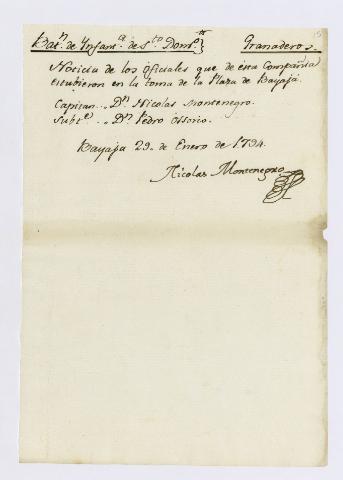 Bat.n de Ynfant.a de S.to Dom.o } Granaderos.
Noticia de los oficiales que de esta Compañia
estubieron en la toma de la Plaza de Bayajá.
Capitan.. D.n Nicolas Montenegro.
Subt.e .. D.n Pedro Ossorio.
Bayaja 29. de Enero de 1794.
Nicolas Montenegro